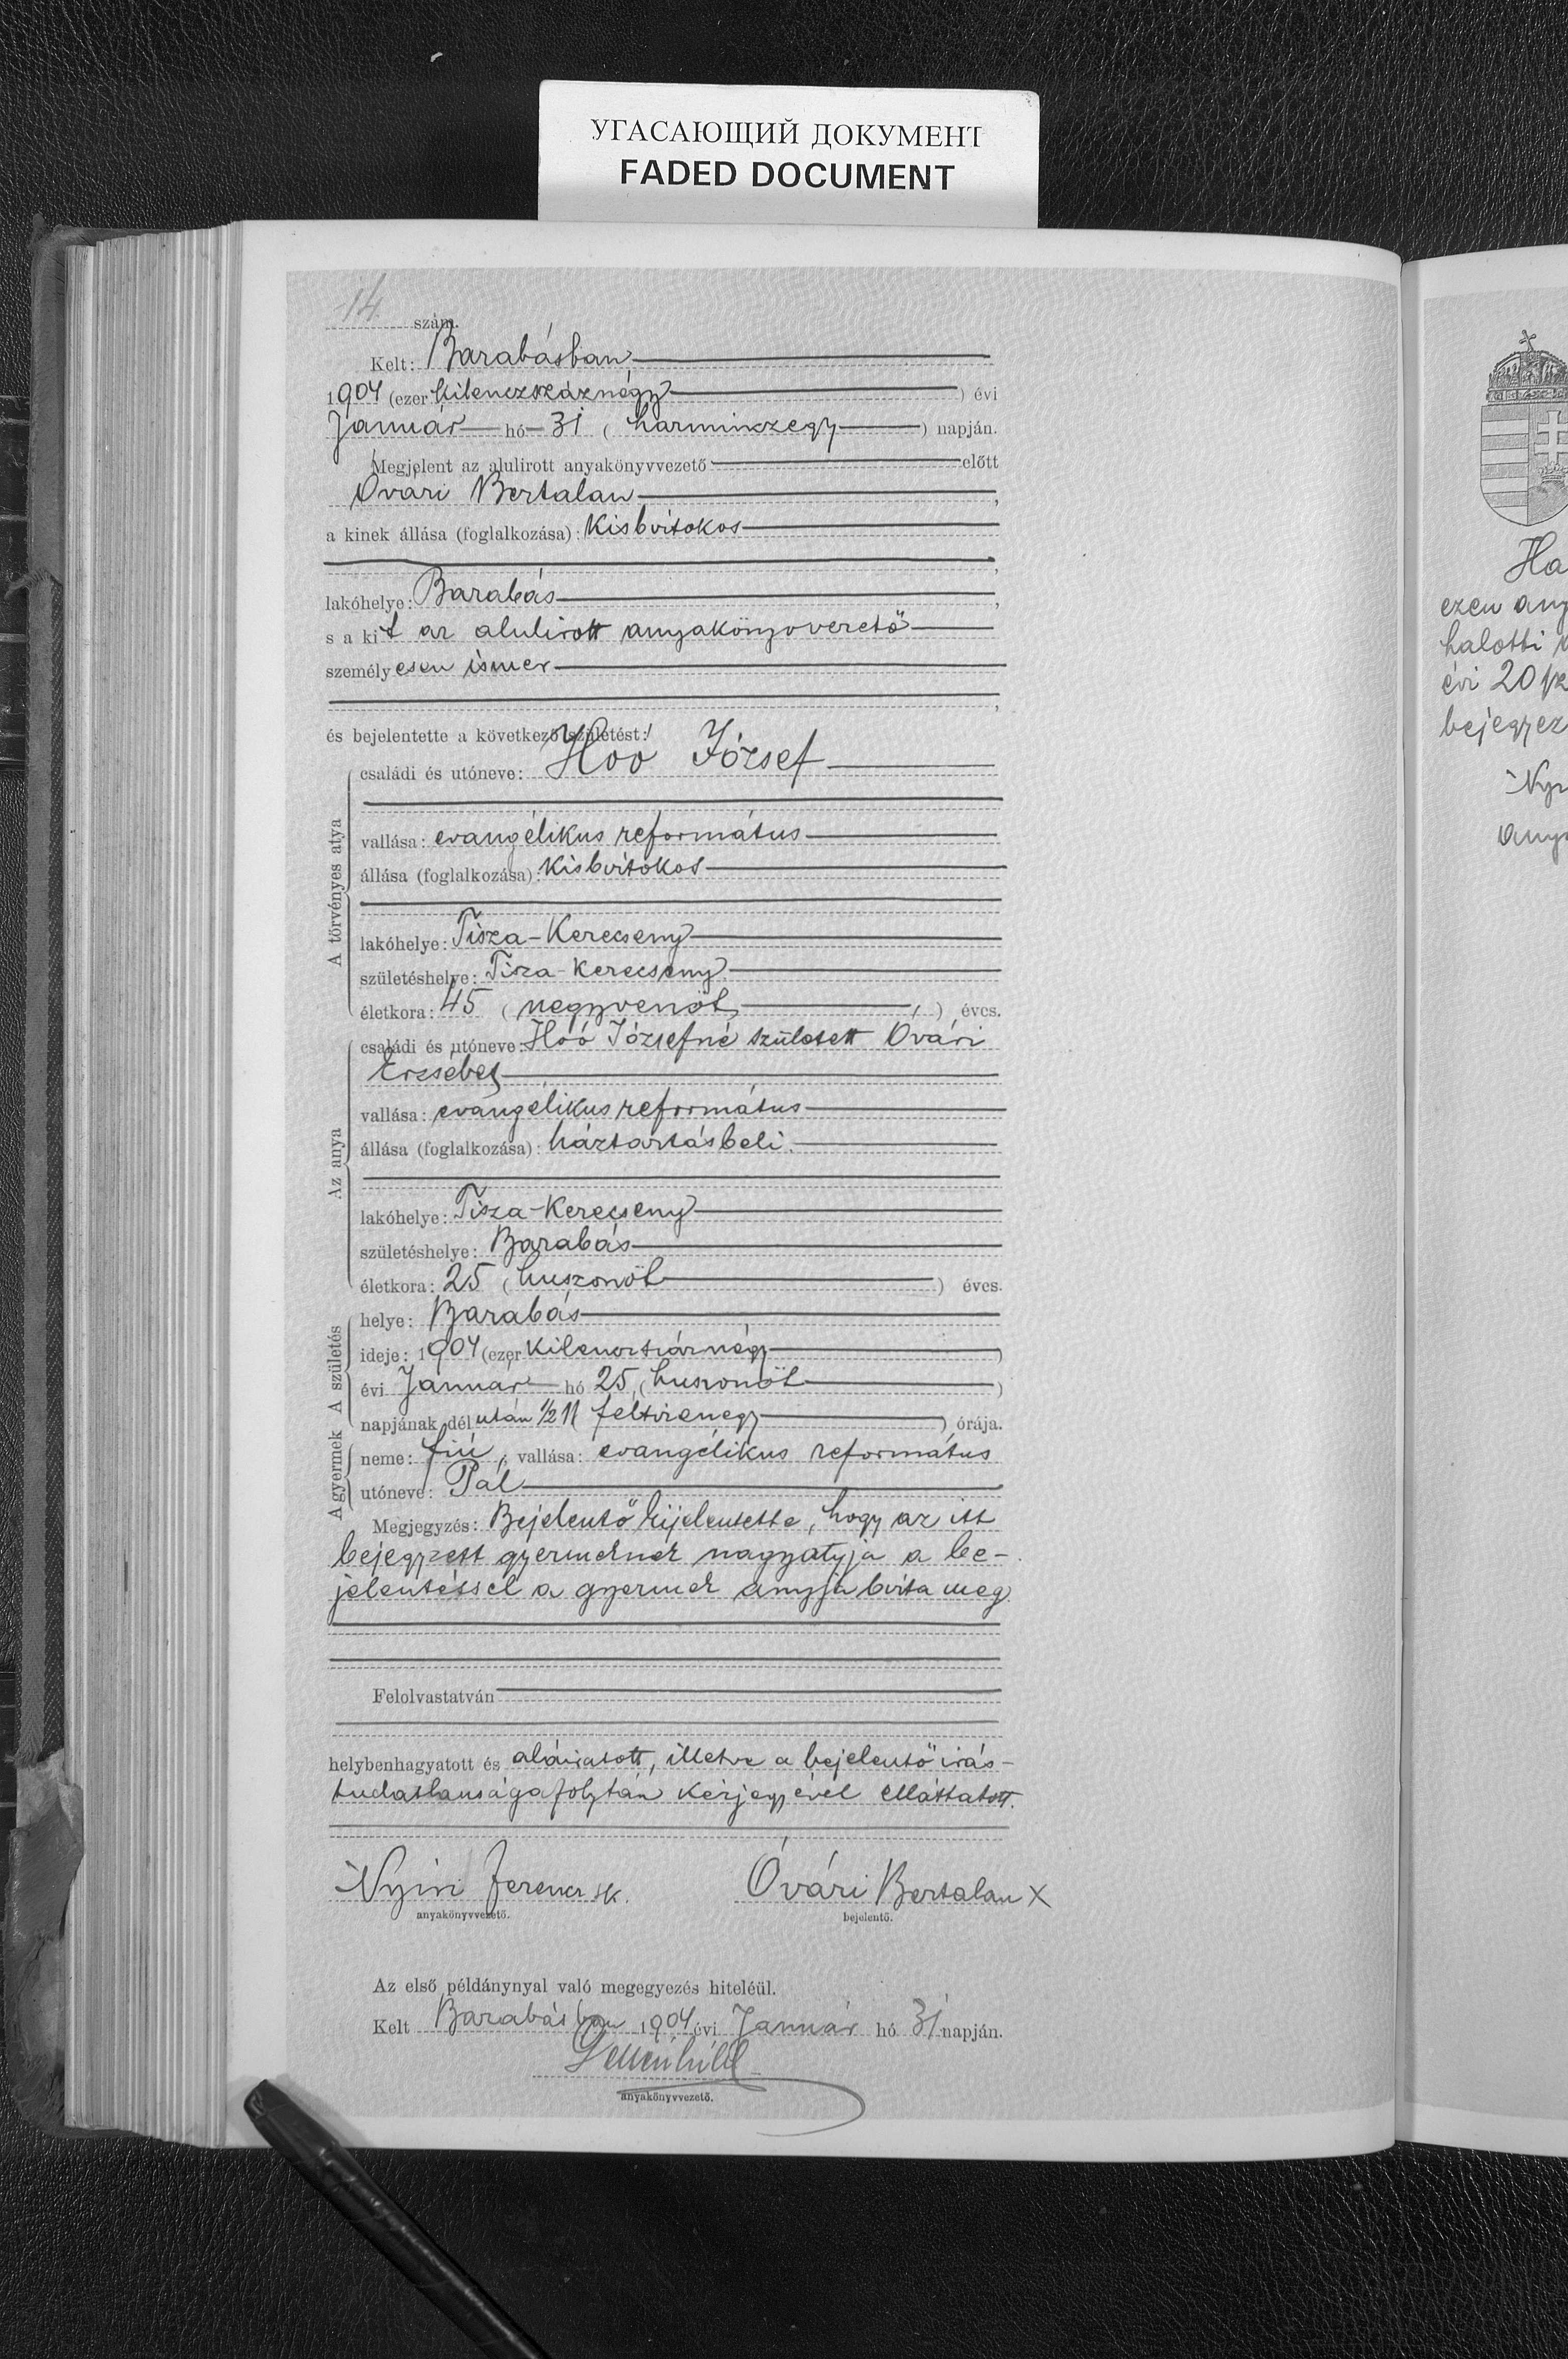 УГАСАЮЩИЙ ДОКУМЕНТ
FADED DOCUMENT
14 szám.
Kelt: Barabásban
1904 (ezer kilenczszáznégy) évi
Január hó 31 (harminczegy) napján.
Megjelent az alulirott anyakönyvvezető előtt
Óvári Bertalan,
a kinek állása (foglalkozása): kisbirtokos
,
lakóhelye: Barabás,
s a kit az alulirott anyakönyvvezető
személyesen ismer
,
és bejelentette a következő születést:
A törvényes atya
családi és utóneve: Hoó József
vallása: evangélikus református
állása (foglalkozása): kisbirtokos
lakóhelye: Tisza-Kerecseny
születéshelye: Tisza-Kerecseny
életkora: 45 (negyvenöt) éves.
Az anya
családi és utóneve: Hoó Józsefné született Óvári
Erzsébet
vallása: evangélikus református
állása (foglalkozása): háztartásbeli.
lakóhelye: Tisza-Kerecseny
születéshelye: Barabás
életkora: 25 (huszonöt) éves.
A születés
helye: Barabás
ideje: 1904 (ezer kilenczszáznégy)
évi Január hó 25 (huszonöt)
napjának délután ½11 féltizenegy) órája.
A gyermek
neme: fiú, vallása: evangélikus református
utóneve: Pál
Megjegyzés: Bejelentő kijelentette, hogy az itt
bejegyzett gyermeknek nagyatyja a be-
jelentéssel a gyermek anyja bizta meg.
Felolvastatván
helybenhagyatott és aláiratott, illetve a bejelentő irás-
tudatlansága folytán kézjegyével elláttatott.
Nyiri Ferencz sk. Óvári Bertalan X
anyakönyvvezető. bejelentő.
Az első példánynyal való megegyezés hiteléül.
Kelt Barabásban 1904 évi Január hó 31 napján.
anyakönyvvezető.
Ha
ezen any
halotti
évi 20
bejegyez
Nyi
any